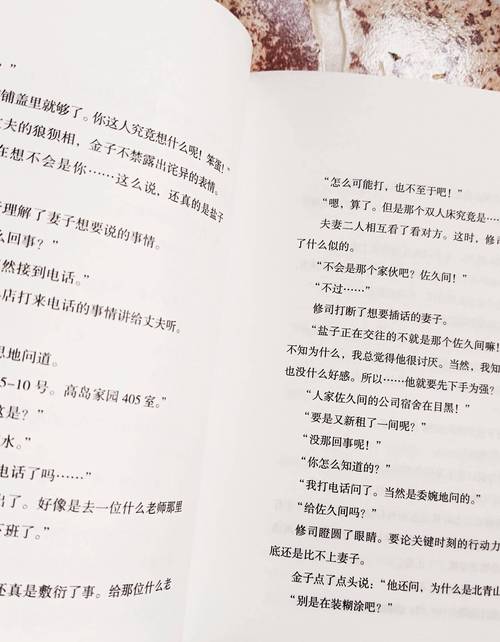 ？”
铺盖里就够了。你这人究竟想什么呢！笨蛋！”
丈夫的狼狈相，金子不禁露出诧异的表情。
在想不会是你……这么说，还真的是盐子
理解了妻子想要说的事情。
么回事？”
然接到电话。”
店打来电话的事情讲给丈夫听。
思地问道。
5-10 号。高岛家园 405 室。”
这是？”
水。”
电话了吗……”
出了。好像是去一位什么老师那里
下班了。”
还真是敷衍了事。给那位什么老
“怎么可能打，也不至于吧！”
“嗯，算了。但是那个双人床究竟是……
夫妻二人相互看了看对方。这时，修司
了什么似的。
“不会是那个家伙吧？佐久间！”
“不过……”
修司打断了想要插话的妻子。
“盐子正在交往的不就是那个佐久间嘛！
不知为什么，我总觉得他很讨厌。当然，我知
也没什么好感。所以……他就要先下手为强？
“人家佐久间的公司宿舍在目黑！”
“要是又新租了一间呢？”
“没那回事呢！”
“你怎么知道的？”
“我打电话问了。当然是委婉地问的。”
“给佐久间吗？”
修司瞪圆了眼睛。要论关键时刻的行动力
底还是比不上妻子。
金子点了点头说：“他还问，为什么是北青山
“别是在装糊涂吧？”